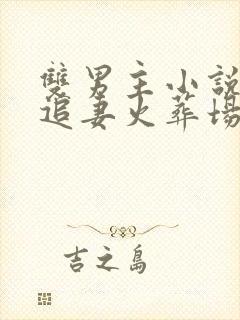 雙男主小說
追妻火葬場
吉之島